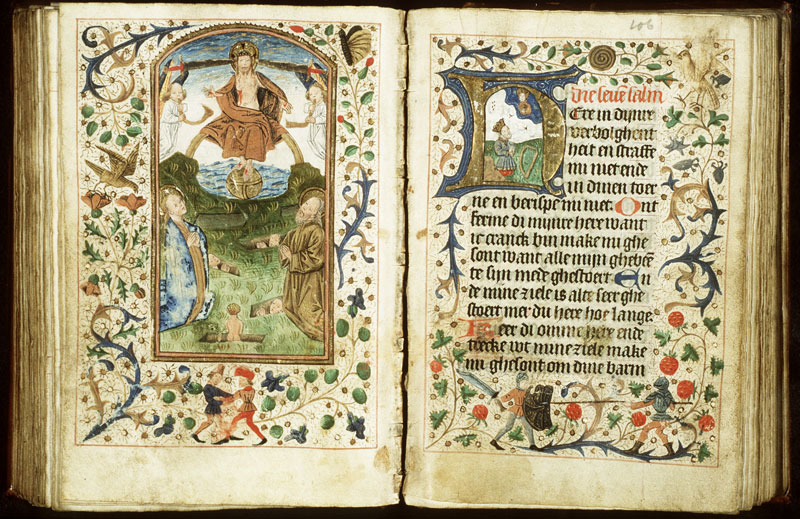 106
Die seuē salm
Ere in dijnre
verbolghent
heit en straffe
mi niet ende
in dinen toer
ne en berispe mi niet. Ont
ferme di mijnre here want
ic cranck bin make mi ghe
sont want alle mijn ghebeē
te sijn mede ghestoert En
de mijne ziele is alte seer ghe
stoert mer du here hoe lange
Keer di omme here ende
trecke wt mine ziele make
mi ghesont om dine barm